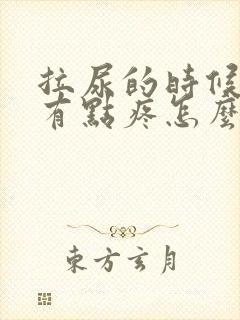 拉尿的時候
有點疼怎麼
東方玄月